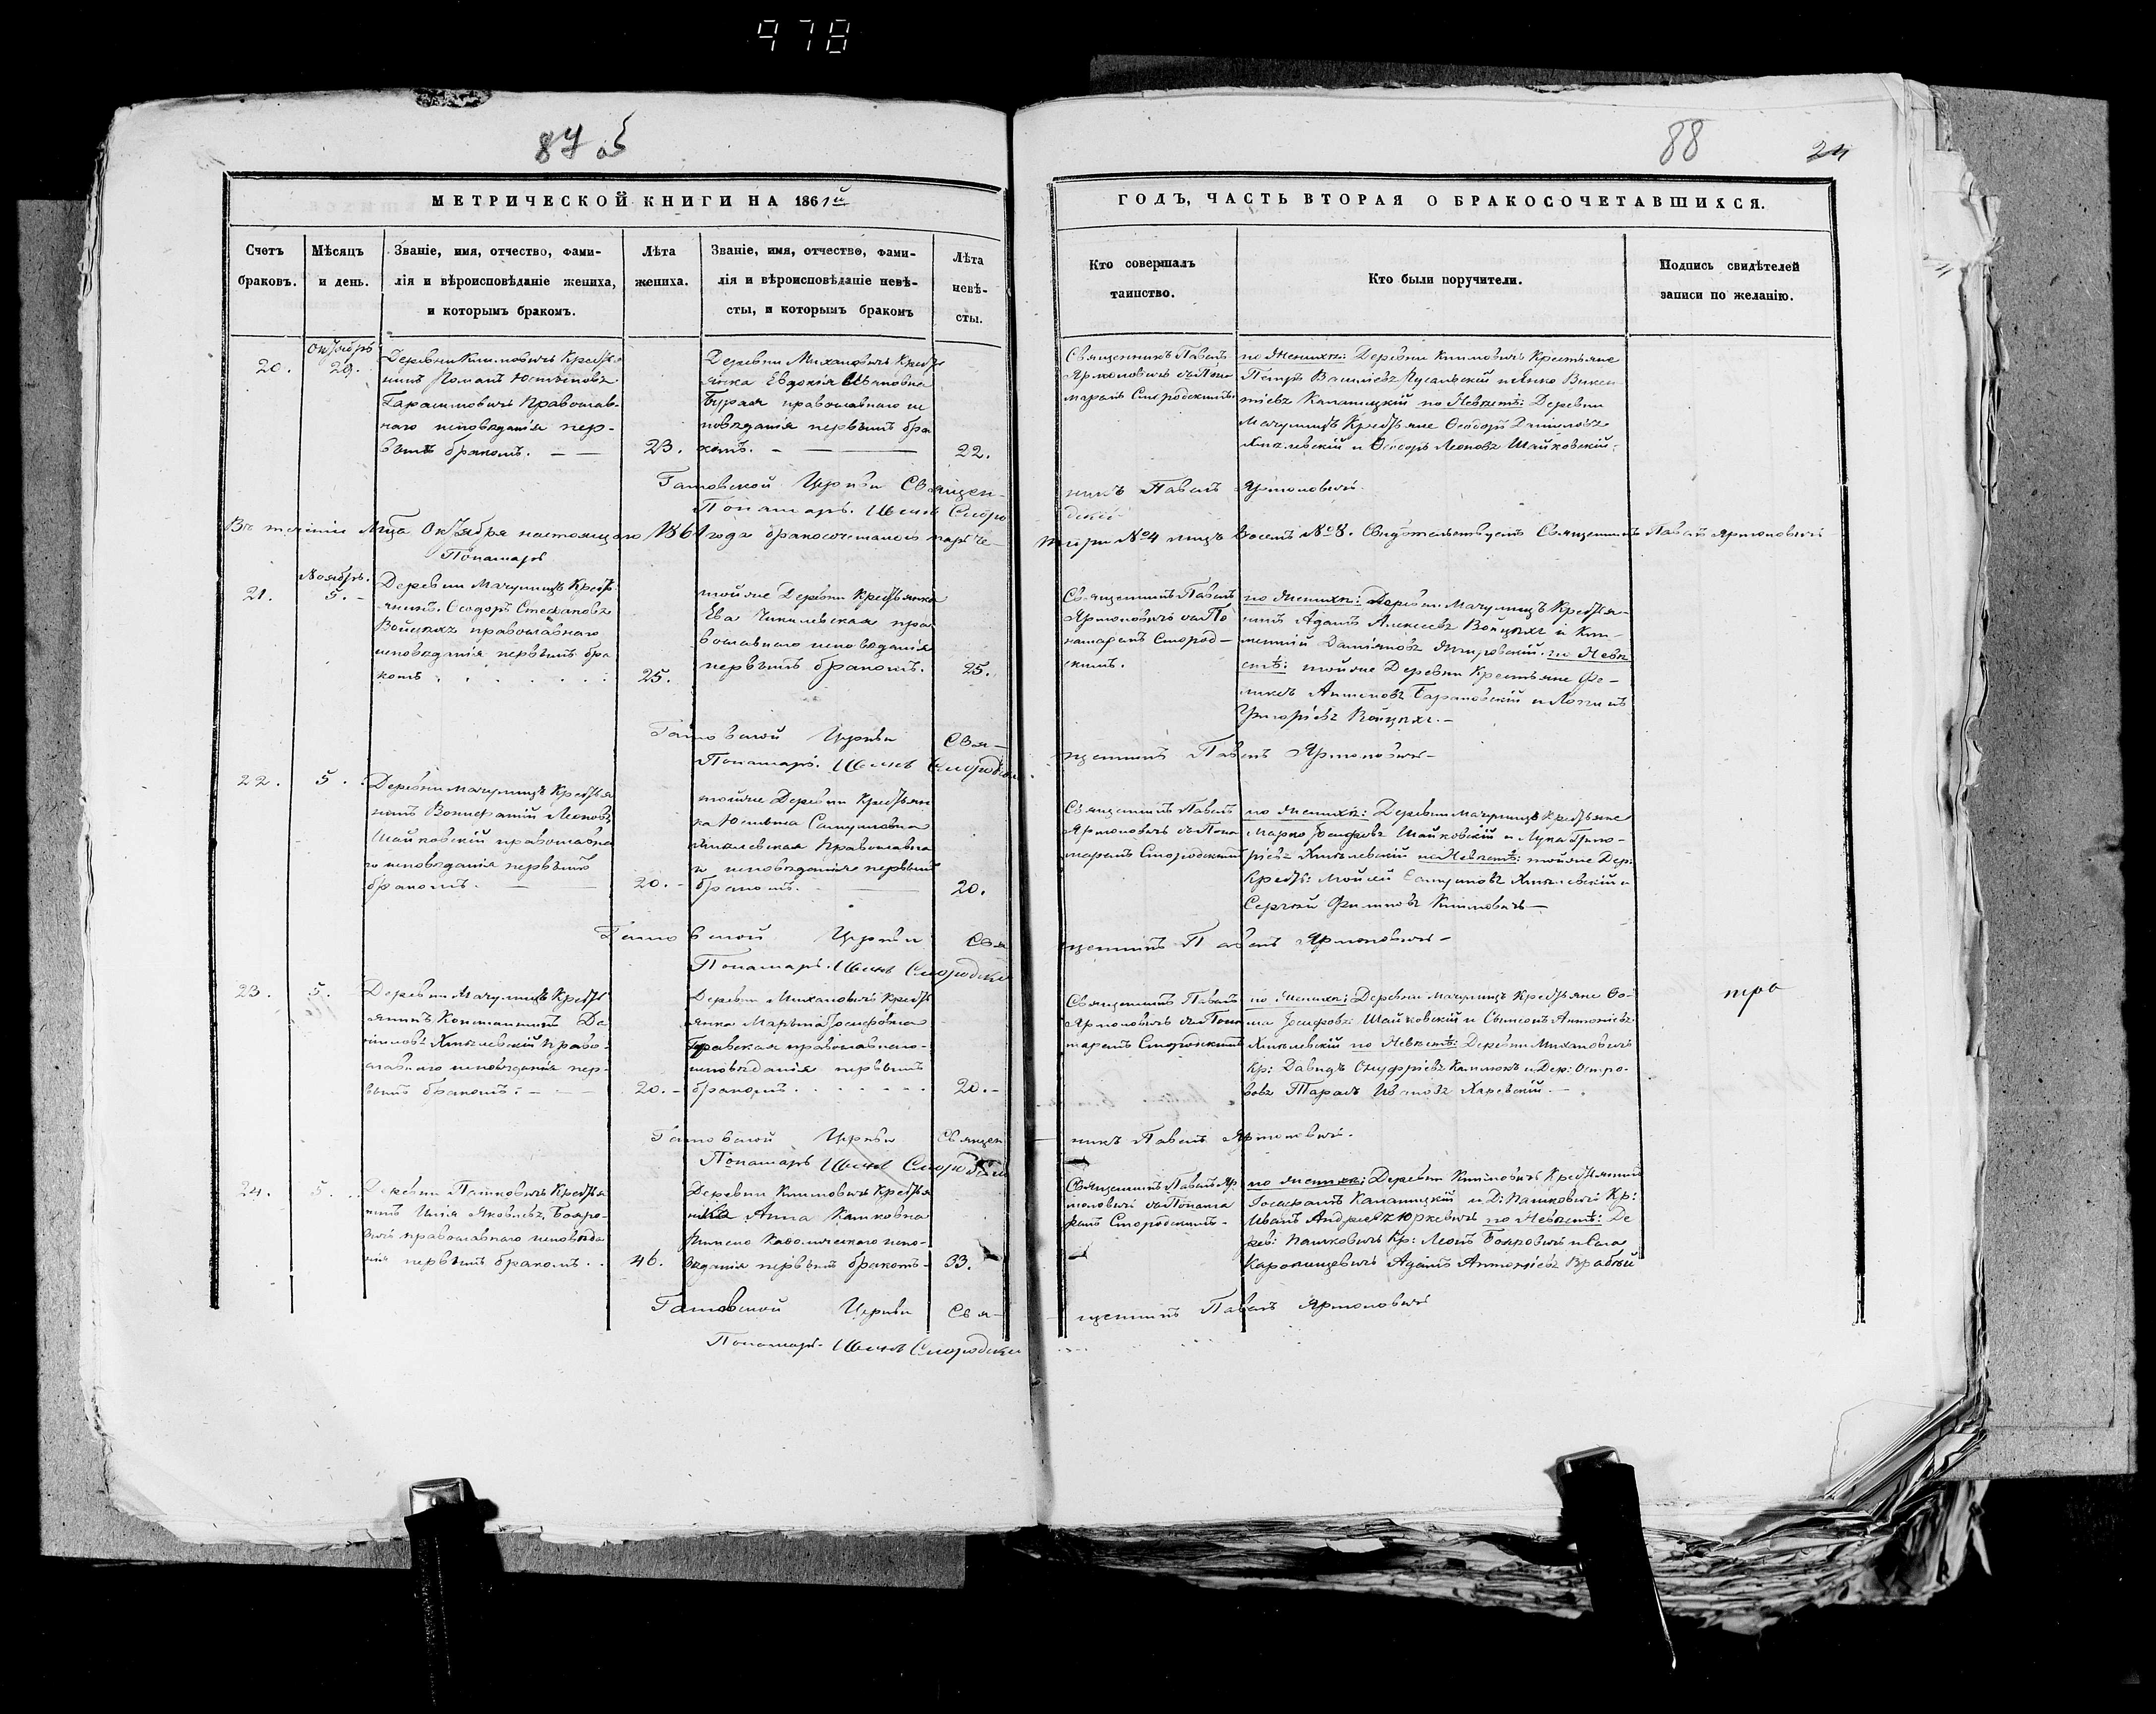 978
87 об
88
24
МЕТРИЧЕСКОЙ КНИГИ НА 1861й
ГОДЪ, ЧАСТЬ ВТОРАЯ О БРАКОСОЧЕТАВШИХСЯ.
Счетъ
браковъ.
Мѣсяцъ
и день.
Званіе, имя, отчество, фами-
лія и вѣроисповѣданіе жениха,
и которымъ бракомъ.
Лѣта
жениха.
Званіе, имя, отчество, фами-
лія и вѣроисповѣданіе невѣ-
сты, и которымъ бракомъ
Лѣта
невѣ-
сты.
Кто совершалъ
таинство.
Кто были поручители.
Подпись свидѣтелей
записи по желанію.
20.
Октябрь
29.
Деревни Климовичъ Крестья-
нинъ Романъ
Гарасимовичъ Православ-
наго исповѣданія пер-
вымъ бракомъ.
23.
Деревни Михановичъ Кресть
янка Евдокія Ивановна
Бурая православнаго ис
повѣданія первымъ бра
комъ.
22.
Священникъ Павелъ
Ярмоловичъ съ Поно
маремъ Смородскимъ.
по Женихѣ: Деревни Климовичъ Крестьяне
Петръ Василіевъ и Янко Викен
тіевъ Капацкій по Невѣстѣ: Деревни
Мачулищъ Крестьяне Ѳеодоръ Даниловъ
Хмѣлевскій и Леоновъ Шайковскій.
Гатовской Церкви Священ-
никъ Павелъ Ярмоловичъ.
Пономарь Смород
скій
Въ теченіи М-ца Октября настоящаго 1861 года бракосочеталось паръ че-
тыри №4 лицъ восемъ №8. Свидѣтельствуетъ Священникъ Павелъ Ярмоловичъ
Пономарь
21.
Ноябрь.
5.
Деревни Мачулищъ Кресть
янинъ Ѳеодоръ Стефановъ
Войцяхъ православнаго
исповѣданія первымъ бра
комъ
25.
тойже Деревни Крестьянка
Ева пра
вославнаго исповѣданія
первымъ бракомъ.
25.
Священникъ Павелъ
Ярмоловичъ съ По
номаремъ Смород-
скимъ.
по Женихѣ: Деревни Мачулищъ Крестья-
нинъ Адамъ Алексеевъ Войцяхъ и Кли-
ментій Даміяновъ по Невѣ
стѣ: тойже Деревни Крестьяне Фе-
ликсъ Антоновъ Барановскій и Логинъ
Григоріевъ Войцяхъ.
Гатовской Церкви Свя-
щенникъ Павелъ Ярмоловичъ
Пономарь Смородскій.
22.
5.
Деревни Мачулищъ Крестья
нинъ Вонифатій Леоновъ
Шайковскій православна
го исповѣданія первымъ
бракомъ.
20.
тойже Деревни Крестьян
ка Юстина Самуиловна
Хмѣлевская Православна
го исповѣданія первымъ
бракомъ.
20.
Священникъ Павелъ
Ярмоловичъ съ Поно
маремъ Смородскимъ
по Женихѣ: Деревни Мачулищъ Крестьяне
Марко Іосифовъ Шайковскій и Лука Григо-
ріевъ Хмѣлевскій по Невѣстѣ: тойже Дер:
Кресть: Мойсей Самуиловъ Хмѣлевскій и
Сергѣй Филиповъ Климовичъ
Гатовской Церкви Свя
щенникъ Павелъ Ярмоловичъ
Пономарь Смородскій
23.
5.
Деревни Мачулищъ Кресть
янинъ Константинъ Да
ніиловъ Хмѣлевскій Право-
славнаго исповѣданія пер-
вымъ бракомъ.
20.
Деревни Михановичъ Кресть
янка Марьяна Іосифовна
православнаго
исповѣданія первымъ
бракомъ.
20.
Священникъ Павелъ
Ярмоловичъ съ Поно
маремъ Смородскимъ
по Женихѣ: Деревни Мачулищъ Крестьяне Ѳо-
ма Іосифовъ Шайковскій и Семіонъ Антоніевъ
Хмѣлевскій по Невѣстѣ: Деревни Михановичъ
Кр: Давидъ Онуфріевъ и Дер: Остро-
вовъ Тарасъ Ивановъ Харевскій.
тро
Гатовской Церкви Священ
никъ Павелъ Ярмоловичъ.
Пономарь Смородскій
24.
5.
Деревни Пашковичъ Крестья
нинъ Илія Яковлевъ Бояро-
вичъ православнаго исповѣда
нія первымъ бракомъ.
46.
Деревни Климовичъ Крестья
нка Анна Камковна
Римско Католическаго испо-
вѣданія первымъ бракомъ
33.
Священникъ Павелъ Яр
моловичъ съ Понома
ремъ Смородскимъ
по Женихѣ: Деревни Климовичъ Крестьянинъ
Іосафатъ Капацкій и Д: Пашковичъ Кр:
Иванъ Андреевъ Юркевичъ по Невѣстѣ: Де
рев: Пашковичъ Кр: Леонъ Бояровичъ и Села
Королищевичъ Адамъ Антоніевъ Врабный
Гатовской Церкви Свя-
щенникъ Павелъ Ярмоловичъ
Пономарь Смородскій